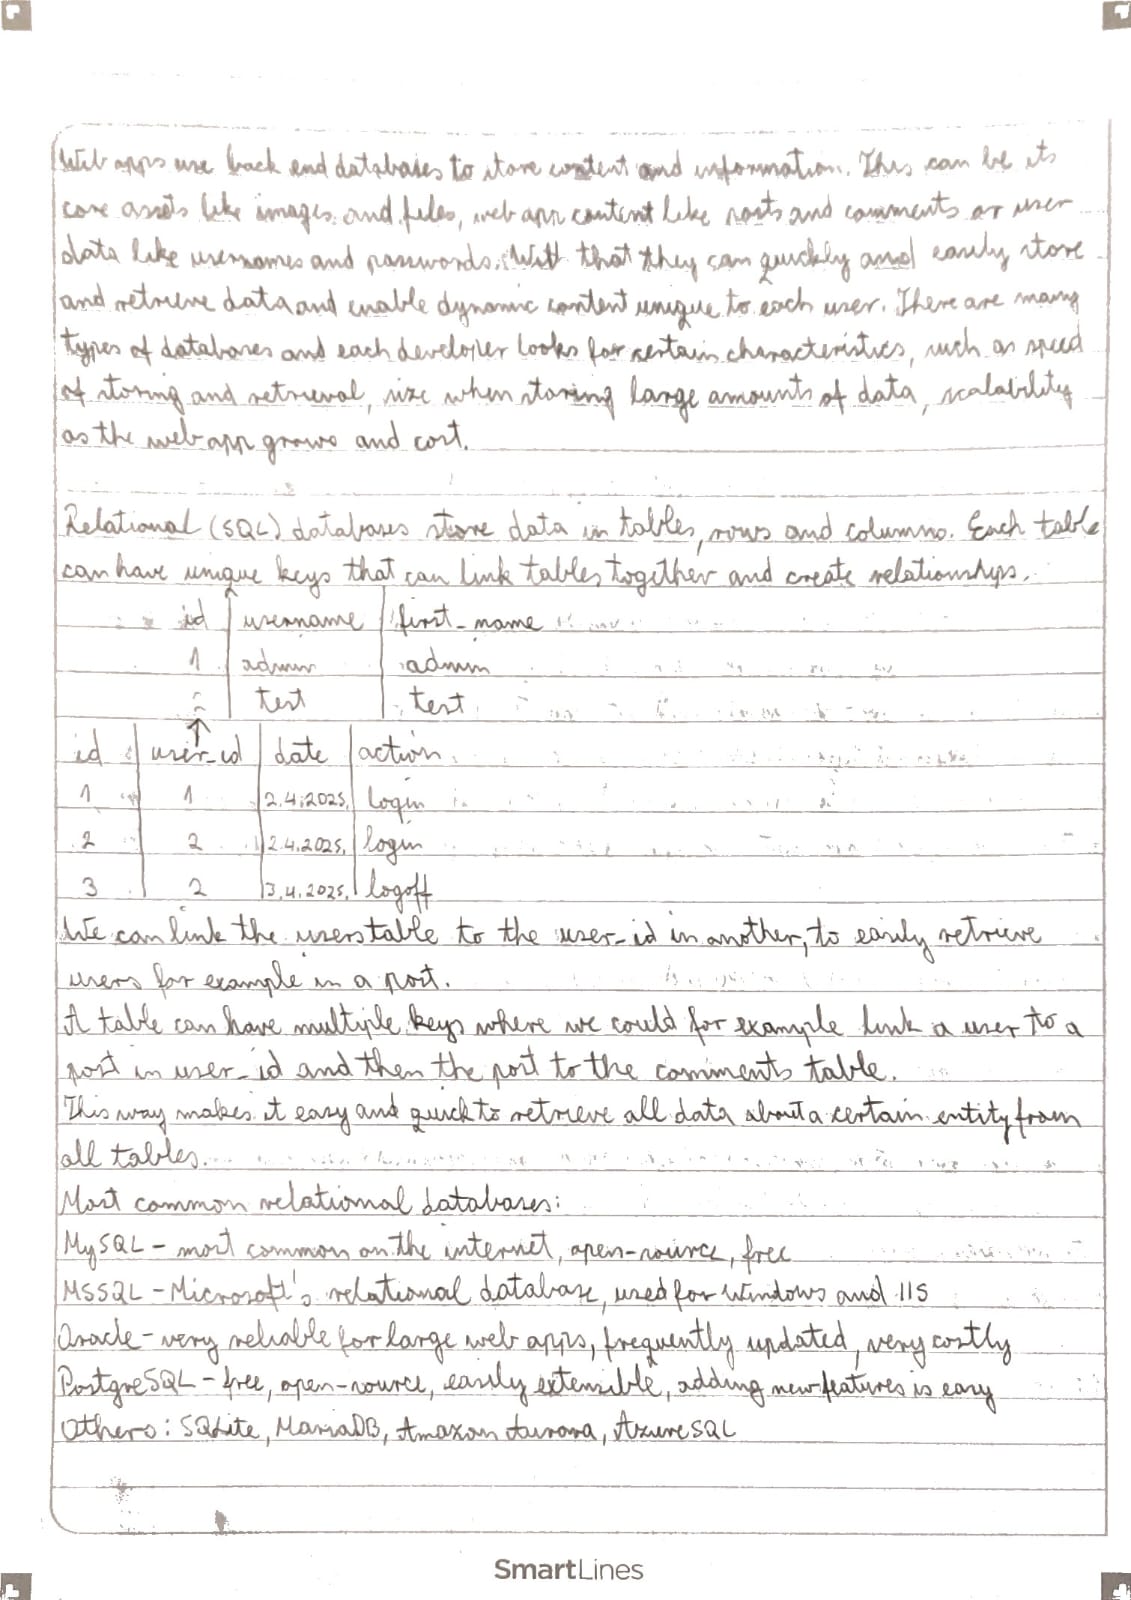 Web apps use back end databases to store content and information. This can be its
core assets like images and files, web app content like posts and comments or user
data like usernames and passwords. With that they can quickly and easily store
and retrieve data and enable dynamic content unique to each user. There are many
types of databases and each developer looks for certain characteristics, such as speed
of storing and retrieval, size when storing large amounts of data, scalability
as the web app grows and cost.
Relational (SQL) databases store data in tables, rows and columns. Each table
can have unique keys that can link tables together and create relationships.
id username first_name
1 admin admin
test test
id user_id date action
1 1 2.4.2025. login
2 2 2.4.2025. login
3 2 3.4.2025. logoff
We can link the users table to the user_id in another, to easily retrieve
users for example in a post.
A table can have multiple keys where we could for example link a user to a
post in user_id and then the post to the comments table.
This way makes it easy and quick to retrieve all data about a certain entity from
all tables.
Most common relational databases:
MySQL - most common on the internet, open-source, free
MSSQL - Microsoft's relational database, used for Windows and IIS
Oracle - very reliable for large web apps, frequently updated, very costly
PostgreSQL - free, open-source, easily extensible, adding new features is easy
Others: SQLite, MariaDB, Amazon Aurora, Azure SQL
SmartLines